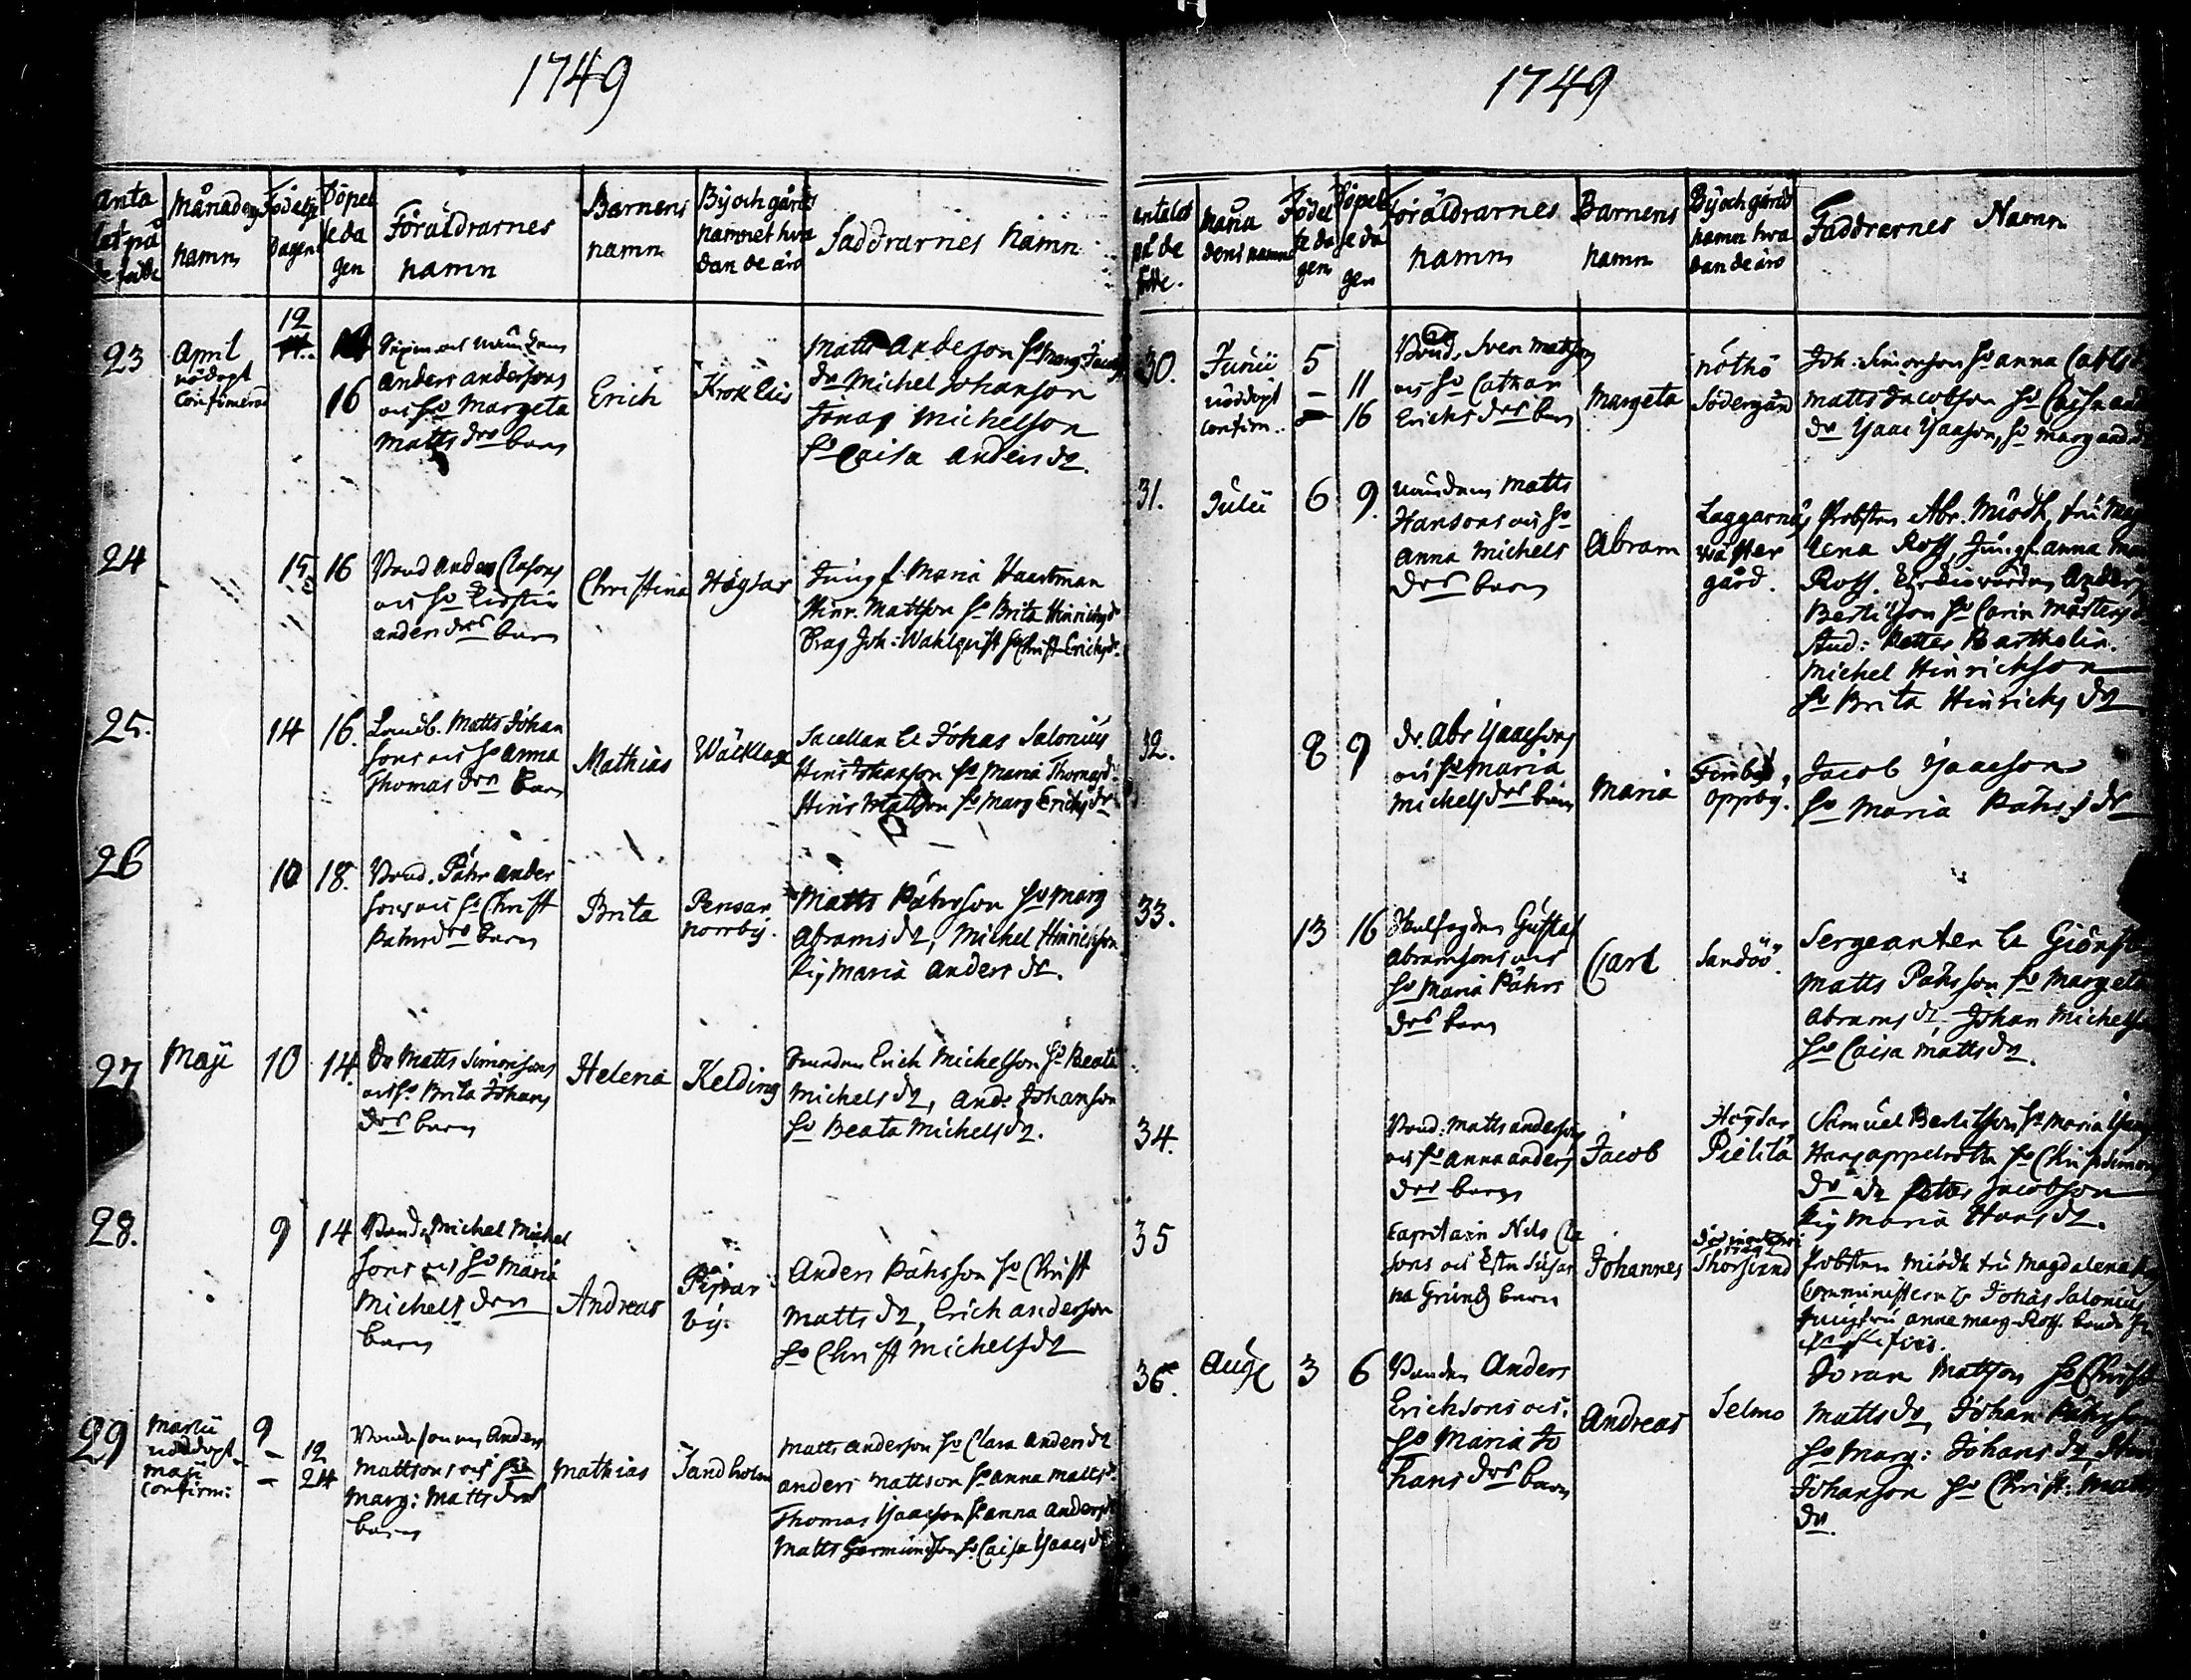 1749
Antalet på de födde
Månadens namn
Födelse dagen
Döpelse dagen
Föräldrarnes namn
Barnens namn
By och gårds namnet hvadan de äro
Faddrarnes namn
23 April nödopt Confirmerad
12
16
Anders Andersons
och h:o Margeta
Matts drs barn
Erich
Krok
Matts Anderson h:o Marg:
dr Michel Johanson
Jonas Michelson
h:o Caisa Anders dr.
24
15
16
Bond Anders Clasons
och h:o Kirstin
Anders drs barn
Christina
Högsar
Jungf. Maria Haartman
Hinr. Mattson h:o Brita Hinrichs dr
Joh: Wahlqvist h:o Christ Erichs dr.
25.
14
16.
Landb. Matts Johan
sons och h:o Anna
Thomas drs barn
Mathias
Wäcklax
Sacellan Er Johas Salonius
Hinr Johanson h:o Maria Thomas d:
Hinr Mattson h:o Marg Erichs dr
26
10
18.
Bond. Påhr Ander
sons och h:o Christ
Påhrs drs barn
Brita
Pensar
norrby.
Matts Påhrson h:o Marg
Abrams dr, Michel Hinrichson
Pig Maria Anders dr.
27
Maji
10
14.
Dr Matts Simonsons
och h:o Brita Johans
drs barn
Helena
Kelding
Bonden Erich Michelson h:o Beata
Michels dr, And: Johanson
h:o Beata Michels dr.
28.
9
14
Bond. Michel Michel
sons och h:o Maria
Michels drs
barn
Andreas
Pipar
by.
Anders Påhrsson h:o Christ
Matts dr, Erich Anderson
h:o Christ Michels dr
29
Martii
nöddopt
Maji
Confirm:
9
– 12
– 24
Bondesonens Anders
Mattsons och h:o
Marg: Matts drs
barn
Mathias
Sandholm
Matts Anderson h:o Clara Anders dr
Anders Mattson h:o Anna Matts d:
Thomas Isaacson h:o Anna Anders dr
Matts h:o Caisa Isaacs dr
1749
Antalet på de födde.
Månadens namn
Födelse dagen
Döpelse dagen
Föräldrarnes namn
Barnens namn
By och gårds namn hvadan de äro
Faddrarnes Namn
30.
Junii
nöddopt
confirm.
5
– 11
– 16
Bond. Sven Matsons
och h:o Cathar
Erichs drs barn
Margeta
nöthö
Södergård
Joh: Simonson h:o Anna
Matts Jacobson h:o Caisa
dr Isaac Isaacson, h:o Marg
31.
Julii
6
9.
Matts
Hansons och h:o
Anna Michels
drs barn
Abram
Laggarnäs
wäster
gård.
Probsten Abr. Miödh, fru
lena Ross, Jungf. Anna
Ross. Kyrckiovärden Anders
Bertilson h:o Carin
Stud: Petter Bartholin.
Michel Hinrichson
h:o Brita Hinrichs dr
32.
8
9
Dr. Abr Isaacsons
och h:o Maria
Michels drs barn
Maria
Finby
oppby.
Jacob Isaacson
h:o Maria Påhrs dr
33.
13
16
Gustaf
Abramsons och
h:o Maria Påhrs
drs barn
Carl
Sandöö.
Sergeanten Er
Matts Påhrson h:o Margeta
Abrams dr, Johan Michelson
h:o Caisa Matts dr.
34.
Bond. Matts Andersons
och h:o Anna Anders
drs barn
Jacob
Högsar
Pielita
Samuel Bertilson h:o Maria
Hans h:o Christ Simons
dr dr Petter Jacobson
Pig Maria Hans dr.
35
Capitain Nils
sons och Susan
na Grund barn
Johannes
Thorsund
Probsten Miödh fru Magdalena
Comministern Er Johas Salonius
Jungfru Anna Marg. Ross
36.
Aug
3
6
Bonden Anders
Erichsons och
h:o Maria Jo
hans drs barn
Andreas
Selmo
Göran Mattson h:o Christ
Matts dr, Johan Påhrson
h:o Marg: Johans dr
Johanson h:o Christ. Matts
dr.